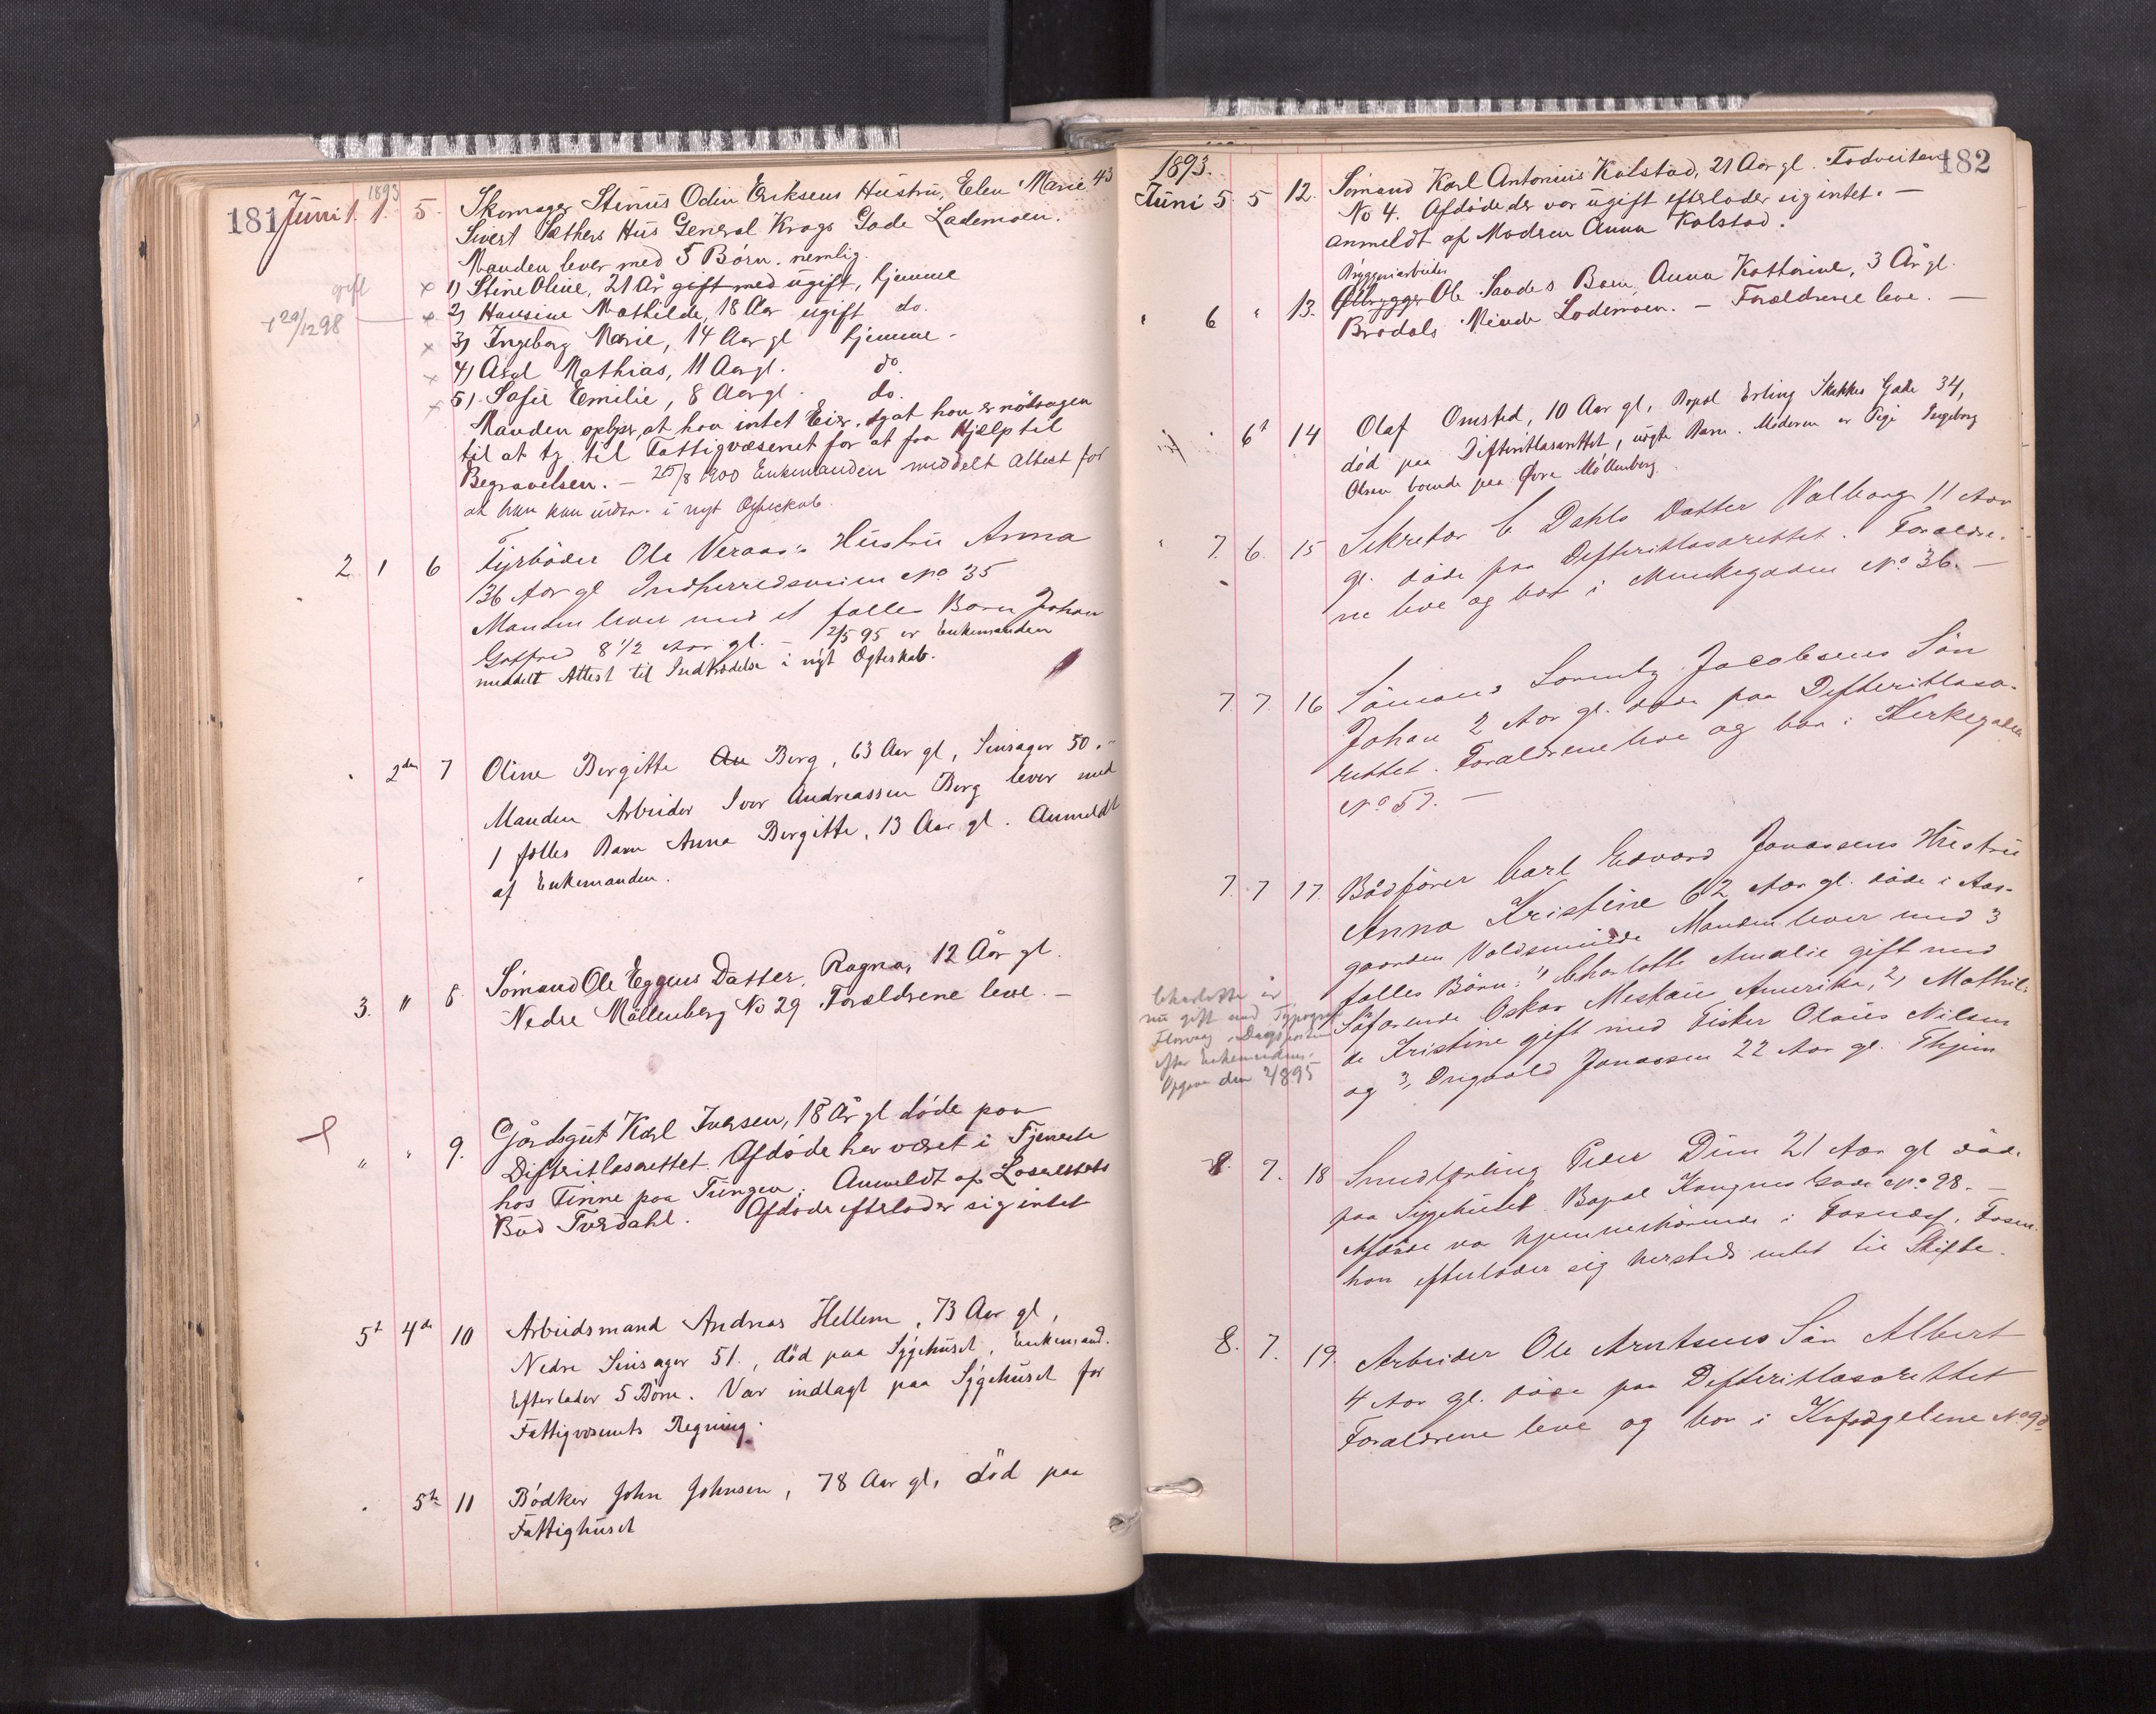 181 Juni 1. 1893 1. 5. Skomager Stinus Odin Eriksens Hustru, Elen Marie 43
Sivert Sæthers Hus General Krags Gade Lademoen.
Manden lever med 5 Børn. nemlig.
gift × 1) Stine Oline, 21 År gift med ugift, hjemme
+ 20/12 98 × 2) Hansine Mathilde, 18 Aar ugift do.
× 3) Ingeborg Marie, 14 Aar gl hjemme -
× 4) Axel Mathias, 11 Aar gl. do
× 5) Sofie Emilie, 8 Aar gl. do.
Manden oplyser, at han intet Eier, og at han er nødsagen
til at ty til Fattigvæsenet for at faa Hjælp til
Begravelsen. - 25/8 1900 Enkemanden meddelt Attest for
at han kan indtr. i nyt Egteskab.
2 1 6 Fyrbøder Ole Veraas's Hustru Anna
36 Aar gl Indherredsveien No 35
Manden lever med et fælles Barn Johan
Gotfred 8 1/2 Aar gl. - 2/5 95 er Enkemanden
meddelt Attest til Indtrædelse i nyt Egteskab.
2den 7 Oline Bergitte An Berg, 63 Aar gl, Sinsager 50.
Manden Arbeider Iver Andreassen Berg lever med
1 fælles Barn Anna Bergitte, 13 Aar gl. Anmeldt
af Enkemanden.
3. " 8 Sømand Ole Eggens Datter, Ragna, 12 Aar gl.
Nedre Møllenberg No 29. Forældrene leve. -
" " 9. Gårdsgut Karl Iversen, 18 År gl døde paa
Difteritlasarettet. Afdøde har været i Tjeneste
hos Finne paa Tungen. Anmeldt af Lasarettets
Bud Tverdahl. Afdøde efterlader sig intet
5t 4de 10 Arbeidsmand Andreas Hellem, 73 Aar gl,
Nedre Sinsager 51., død paa Sygehuset, Enkemand.
Efterlader 5 Børn. Var indlagt paa Sygehuset for
Fattigvæsenets Regning.
5te 11 Bødker John Johnsen, 78 Aar gl, død paa
Fattighuset
182
1893.
Juni 5. 5 12. Sømand Karl Antonius Kolstad, 21 Aar gl. Fodveiten
No 4. Afdøde der var ugift efterlader sig intet. -
anmeldt af Modren Anna Kolstad.
Bryggeriarbeider
6 " 13. Ølbrygger Ole Sandes Barn Anna Kathrine, 3 År gl.
Brodals Minde Lademoen. - Forældrene leve. -
6t 14 Olaf Omsted, 10 Aar gl, Bopæl Erling Skakkes Gade 34,
død paa Difteritlasarettet, uægte Barn. Moderen er Pige Ingeborg
Olsen boende paa Øvre Møllenberg.
7. 6. 15 Sekretær C Dahls Datter Valborg 11 Aar
gl. døde paa Difteritlasarettet. Forældre-
ne leve og bor i Munkegaden No 36. -
7 7. 16 Sømand Lorentz Jacobsens Søn
Johan 2 Aar gl. døde paa Difteritlasa-
rettet. Forældrene leve og bor i Kirkegaden
No 57. -
7. 7 17. Bådfører Carl Edvard Jonassens Hustru
Anna Kristine 62 Aar gl. døde i Aas-
gaarden Voldsminde Manden lever med 3
fælles Børn: 1, Charlotte Amalie gift med
Søfarende Oskar Meskau Amerika, 2, Mathil-
de Kristine gift med Fisker Olaus Nilsen
og 3, Ingvald Jonassen 22 Aar gl. Thjem
Charlotte er
nu gift med Typograf
Florvag i Dagsposten
efter Enkemandens
Opgave den 2/8 95
8. 7. 18 Smedlærling Peder Dun 21 Aar gl døde
paa Sygehuset. Bopæl Kongens Gade No 98. -
Afdøde var hjemmehørende i Fosnæs, Fosen.
han efterlader sig hersteds intet til Skifte.
8. 7. 19. Arbeider Ole Arntsens Søn Albert
4 Aar gl. døde paa Difteritlasarettet
Forældrene leve og bor i No 9d